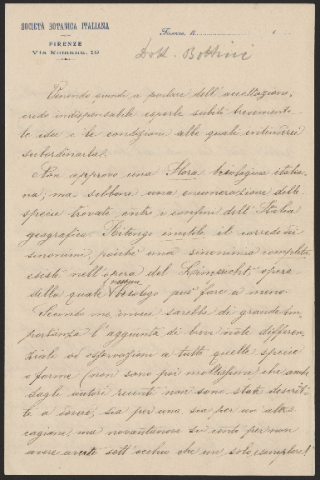 SOCIETÀ BOTANICA ITALIANA
FIRENZE
Via Romana, 19
Firenze, li
Dott. Bottini
Venendo quindi a parlare dell'accettazione,
credo indispensabile esporle subito brevemente
le idee e le condizioni alle quali intenderei
subordinarla.
Non approvo una Flora briologica italia-
na; ma sibbene una enumerazione delle
specie trovate entro i confini dell'Italia
geografica. Ritengo inutile il corredo dei
sinonimi, poiché una sinonimia completa
esiste nell'opera del Limpricht, opera
della quale nessun briologo può fare a meno.
Secondo me, invece sarebbe di grande im-
portanza l'aggiunta di brevi note differen-
ziali ed osservazioni a tutte quelle specie
e forme (non sono poi moltissime) che
dagli autori recenti non sono state descrit-
te a dovere, sia per una sia per un'altra
cagione; ma novantanove su cento per non
avere avuto sott'occhio che un solo esemplare!